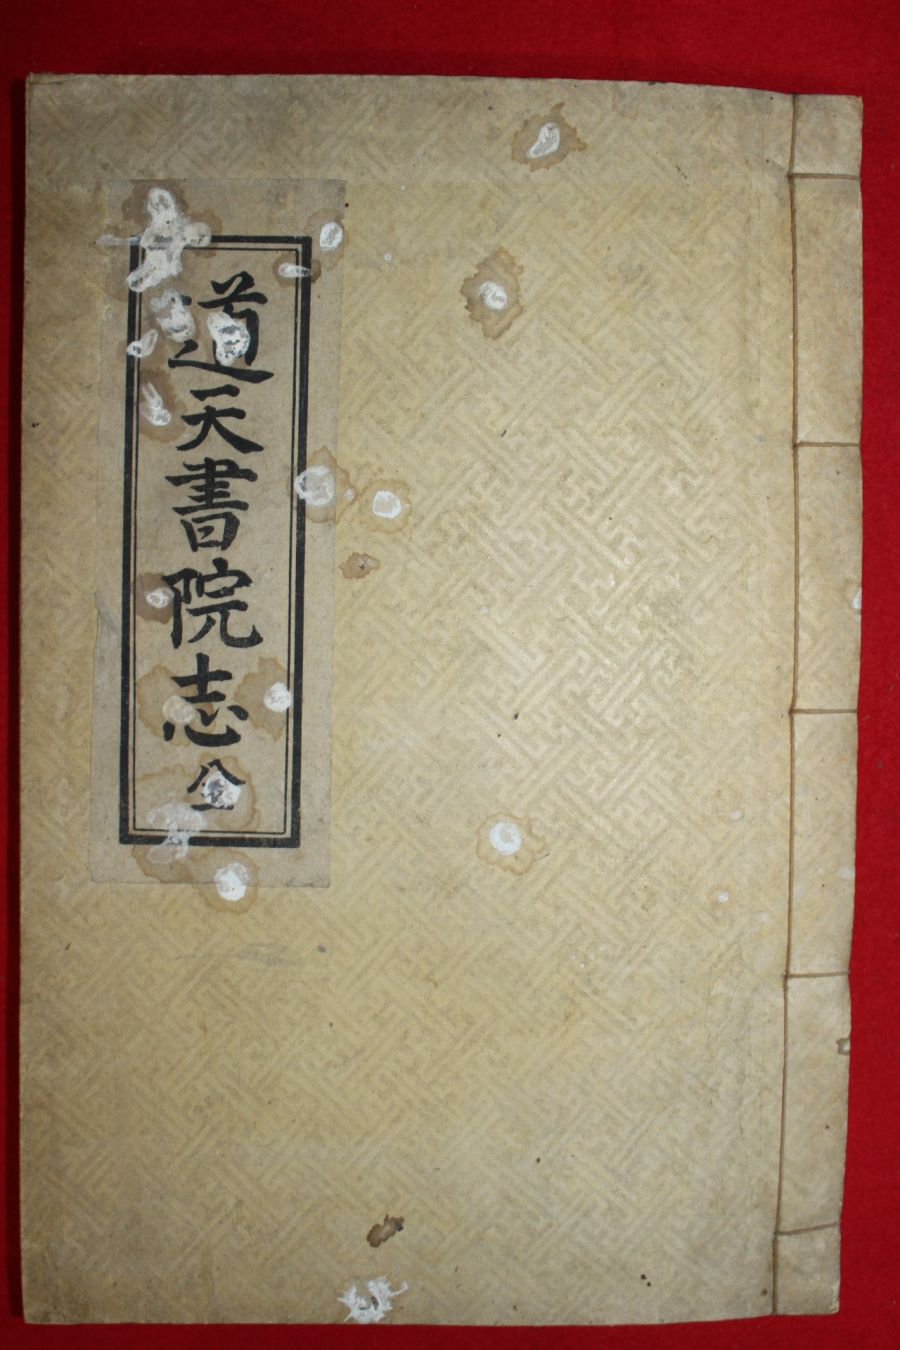 道天書院志全